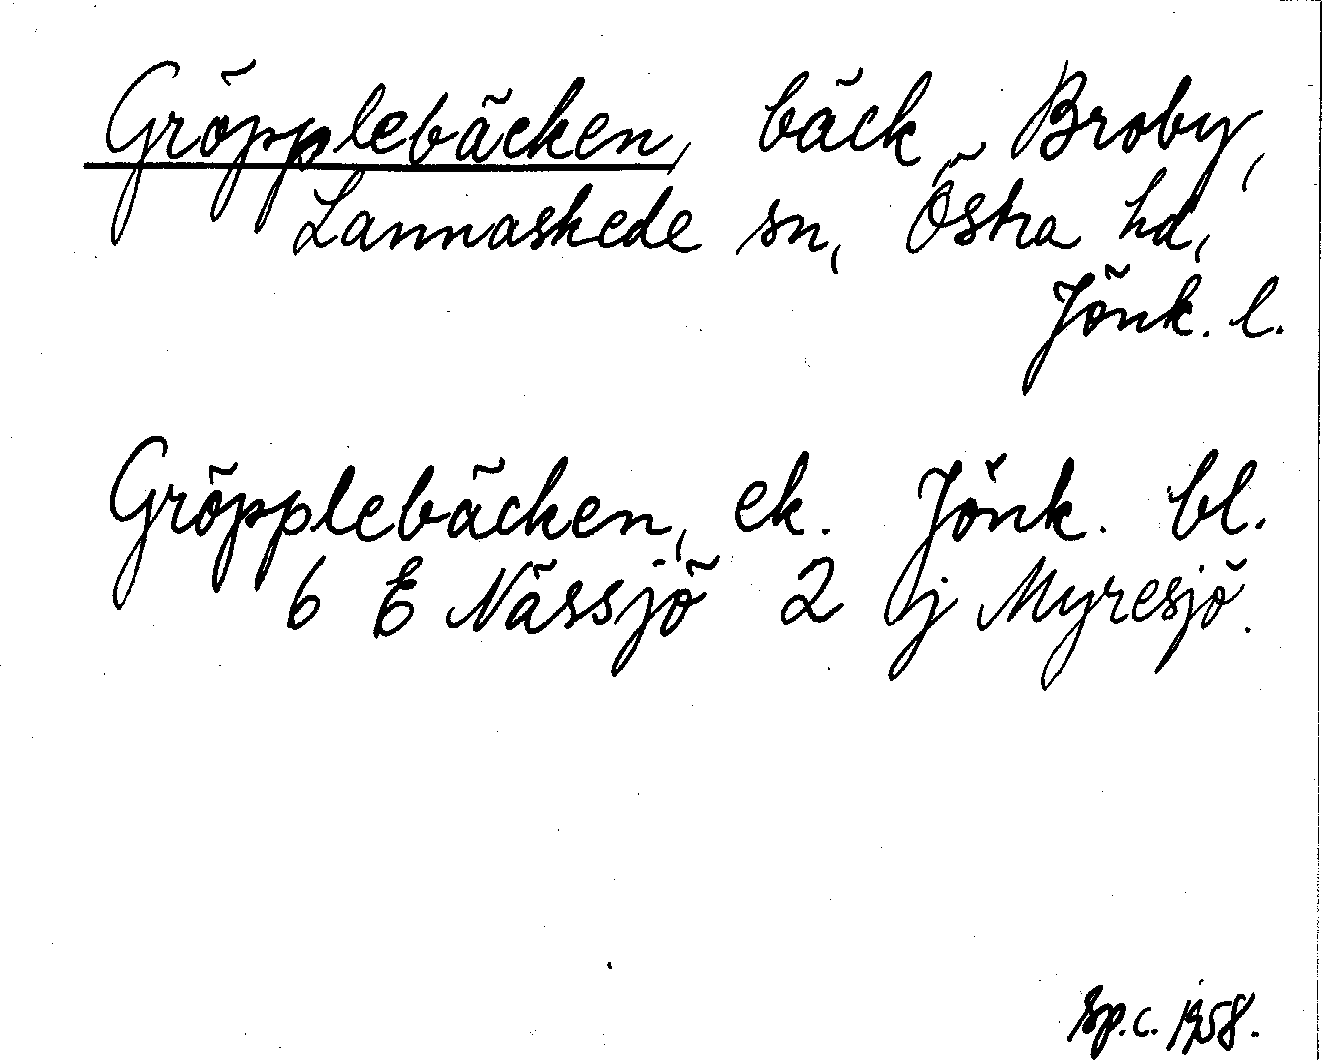 Gröpplebäcken, bäck, Broby,
Lannaskede sn, Östra hd,
Jönk. l.
Gröpplebäcken, ek. Jönk. bl.
6 E Nässjö 2 j Myresjö.
Sp.c. 1958.